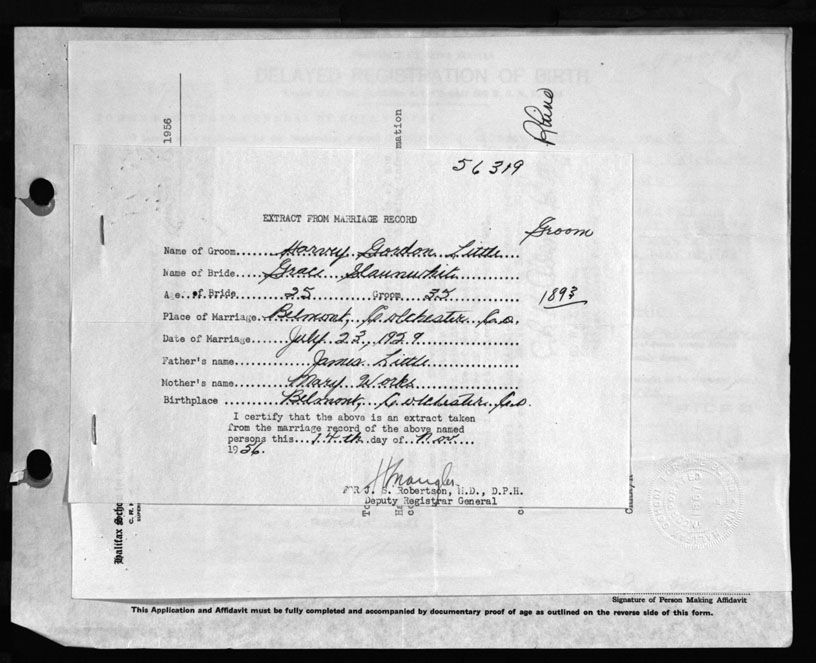 DELAYED REGISTRATION OF BIRTH
1956
mation
56319
EXTRACT FROM MARRIAGE RECORD
Groom
Name of Groom......Harvey Gordon Little...
Name of Bride...Grace Slaunwhite
Age..of Bride.........25.........Groom...35............
1893
Place of Marriage..Belmont, Colchester Co.
Date of Marriage....July 23, 1929
Father's name............James Little
Mother's name........Mary Works
Birthplace ........Belmont, Colchester Co.
I certify that the above is an extract taken
from the marriage record of the above named
persons this...14th.day of..Nov......
1956.
FOR J. S. Robertson, M.D., D.P.H.
Deputy Registrar General
Halifax Scho
Signature of Person Making Affidavit
This Application and Affidavit must be fully completed and accompanied by documentary proof of age as outlined on the reverse side of this form.